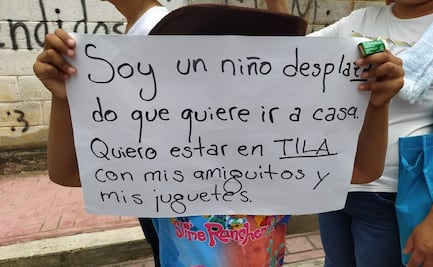 endidos
Soy un niño despla
do que quiere ir a casa.
Quiero estar en TILA
con mis amiguitos y
mis juguetes.
Slime Rancher